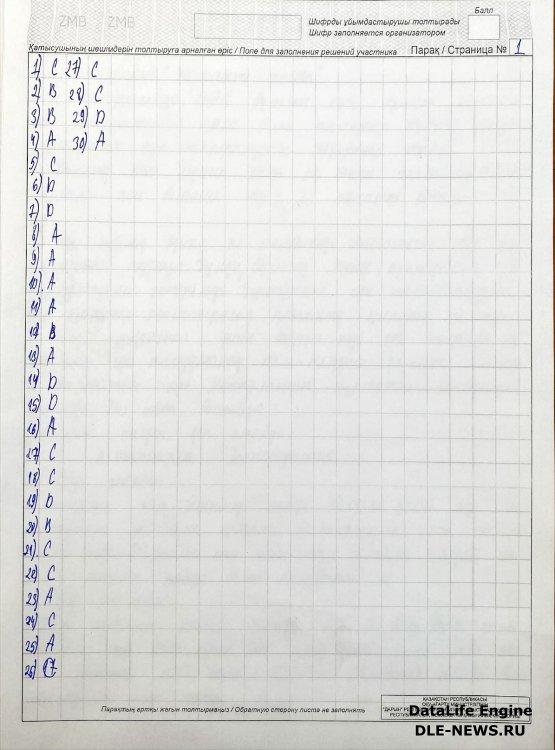 ZMB ZMB
Балл
Шифрды ұйымдастырушы толтырады
Шифр заполняется организатором
Қатысушының шешімдерін толтыруға арналған өріс / Поле для заполнения решений участника
Парақ / Страница № 1
1) C 27) C
2) B 28) C
3) B 29) D
4) A 30) A
5) C
6) D
7) D
8) A
9) A
10) A
11) A
12) B
13) A
14) D
15) D
16) A
17) C
18) C
19) D
20) B
21) C
22) C
23) A
24) C
25) A
26)
Парақтың артқы жағын толтырмаңыз / Обратную сторону листа не заполнять
ҚАЗАҚСТАН РЕСПУБЛИКАСЫ
ОҚУ-АҒАРТУ МИНИСТРЛІГІ
DataLife Engine
DLE-NEWS.RU